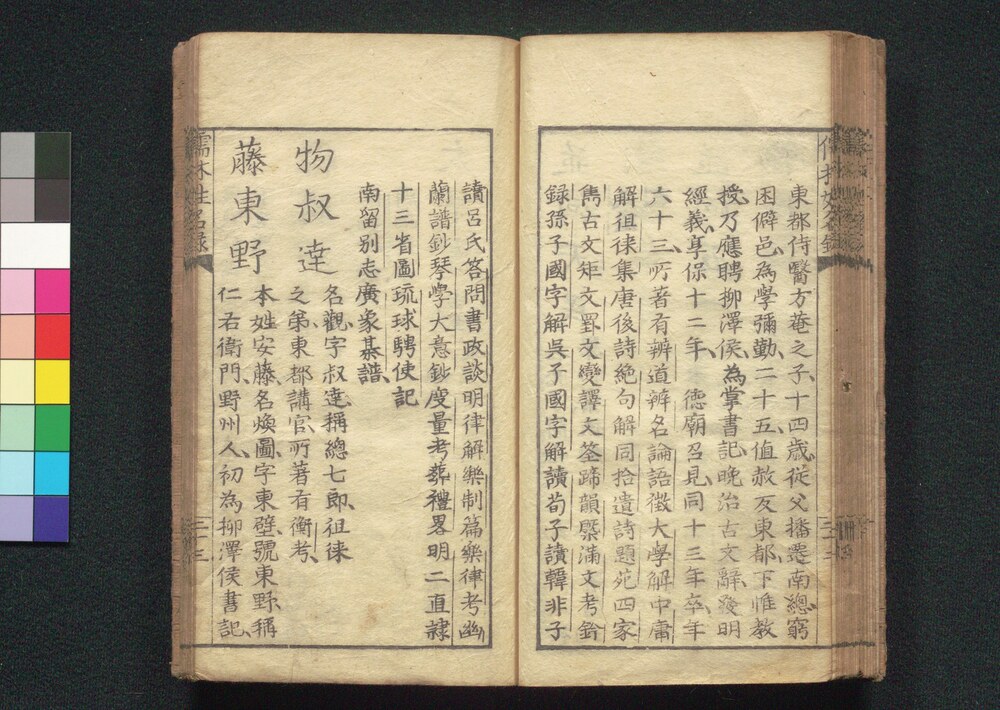 東都侍醫方菴之子十四歲從父播遷南總窮
困僻邑為學彌勤二十五值赦反東都下帷教
授乃應聘柳澤侯為掌書記晚治古文辭發明
經義享保十二年 德廟召見同十三年卒年
六十三所著有辨道辨名論語徵大學解中庸
解徂徠集唐後詩絕句解同拾遺詩題苑四家
雋古文矩文罫文變譯文筌蹄韻槩滿文考鈐
錄孫子國字解吳子國字解讀荀子讀韓非子
讀呂氏答問書政談明律解樂制篇樂律考幽
蘭譜鈔琴學大意鈔度量考葬禮畧明二直隸
十三省圖琉球聘使記
南留別志廣象棊譜
物叔達
名觀字叔達稱總七郎徂徠
之弟東都講官所著有衡考
藤東野
本姓安藤名煥圖字東壁號東野稱
仁右衛門野州人初為柳澤侯書記
儒林姓名錄
三十三